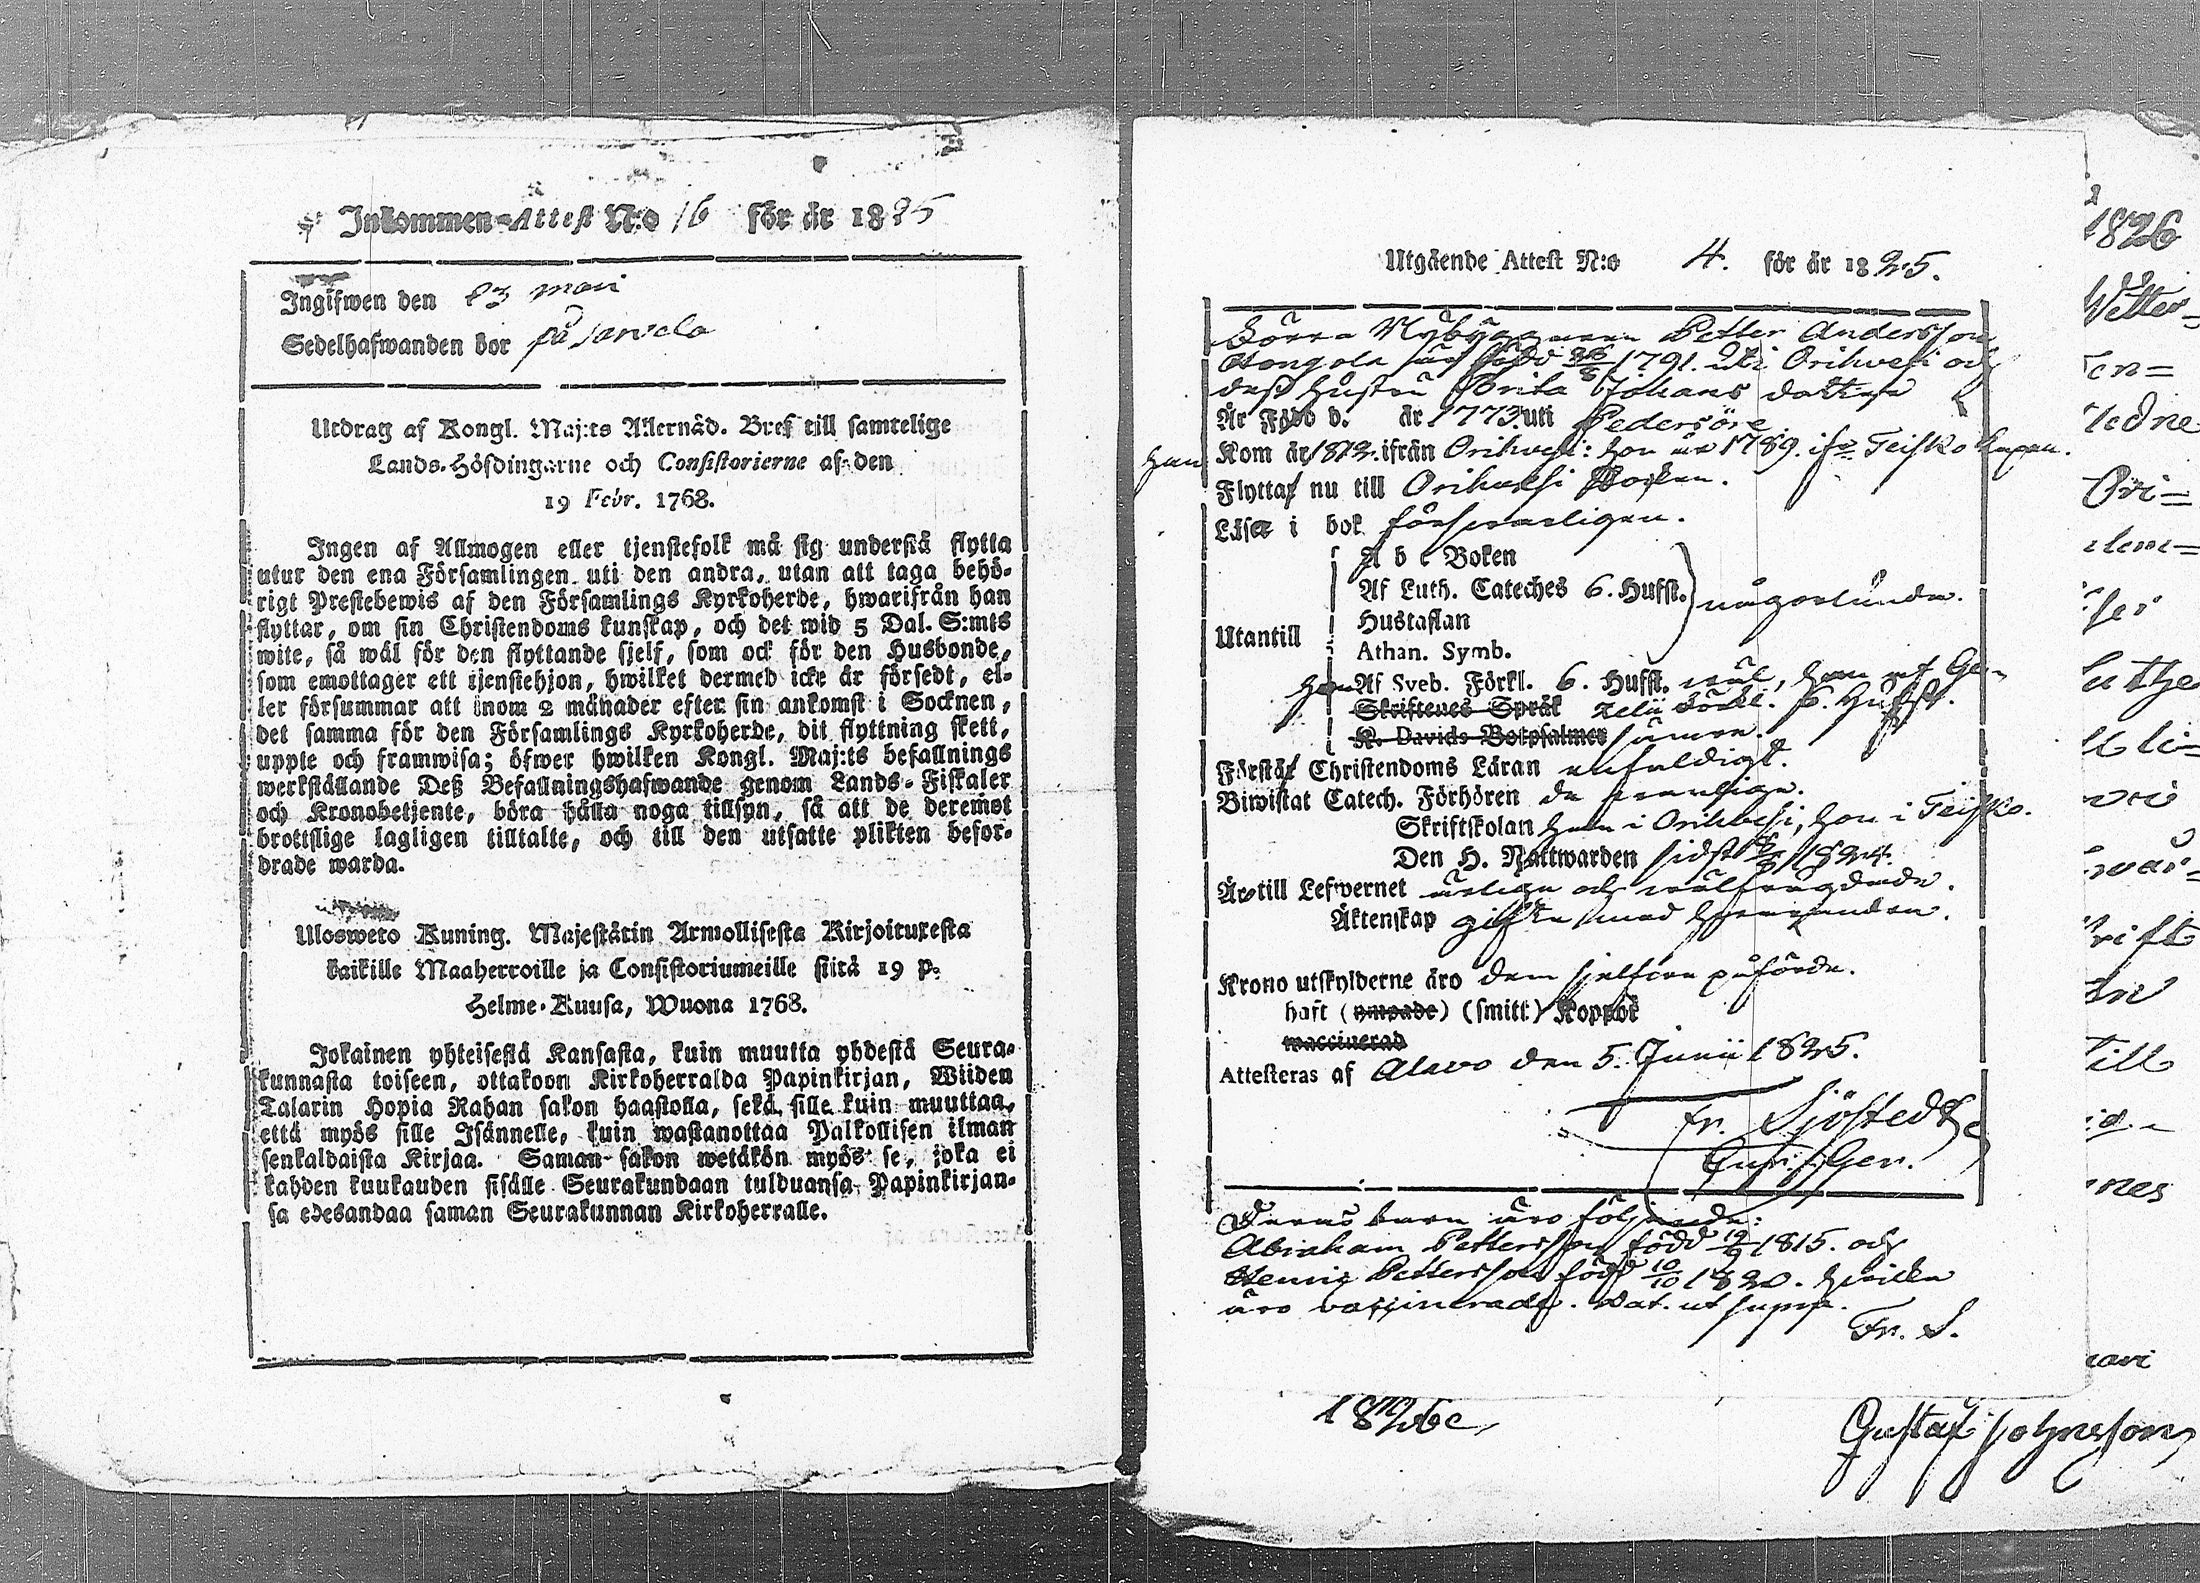 Inkommen-Attest N:o 16 för år 1825
Ingifwen den 23 maii
Sedelhafwanden bor på Sarvela
Utdrag af Kongl. Maj:ts Allernåd. Bref till samtelige
Lands-Höfdingarne och Consistorierne af den
19 Febr. 1768.
Ingen af Allmogen eller tjenstefolk må sig understå flytta
utur den ena Församlingen uti den andra, utan att taga behö-
rigt Prestebewis af den Församlings Kyrkoherde, hwarifrån han
flyttar, om sin Christendoms kunskap, och det wid 5 Dal. S:mts
wite, så wäl för den flyttande sjelf, som ock för den Husbonde,
som emottager ett tjenstehjon, hwilket dermed icke är försedt, el-
ler försummar att inom 2 månader efter sin ankomst i Socknen,
det samma för den Församlings Kyrkoherde, dit flyttning skett,
uppte och framwisa; öfwer hwilken Kongl. Maj:ts befallnings
werkställande Deß Befallningshafwande genom Lands-Fiskaler
och Kronobetjente, böra hålla noga tillsyn, så att de deremot
brottslige lagligen tilltalte, och till den utsatte plikten befor-
drade warda.
Ulosweto Kuning. Majestätin Armollisesta Kirjoituxesta
kaikille Maaherroille ja Consistoriumeille siitä 19 p.
Helme-Kuusa, Wuona 1768.
Jokainen yhteisestä Kansasta, kuin muutta yhdestä Seura-
kunnasta toiseen, ottakoon Kirkoherralda Papinkirjan, Wiiden
Talarin Hopia Rahan sakon haastolla, sekä sille kuin muuttaa,
että myös sille Isännelle, kuin wastanottaa Palkollisen ilman
senkaldaista Kirjaa. Saman sakon wetäkön myös se, joka ei
kahden kuukauden sisälle Seurakundaan tulduansa Papinkirjan-
sa edesandaa saman Seurakunnan Kirkoherralle.
Utgående Attest N:o 4. för år 1825.
Förra Nybyggaren Petter Andersson
Hongola är född 26/8 1791. uti Orihvesi och
deß hustru Brita Johans dotter
Är Född d. år 1773. uti Pedersöre
han Kom år 1812. ifrån Orihvesi: hon år 1789. ifr. Teisko Capen.
Flytta nu till Orihvesi Socken.
Läser i bok försvarligen.
A b c Boken
Af Luth. Cateches 6. Hufst. någorlunda.
Hustaflan
Utantill
Athan. Symb.
Han Af Sveb. Förkl. 6. Hufst. väl, hon af Ge-
Skriftenes Språk zelii Förkl. 6. Hufst.
K. Davids Botpsalmer sämre.
Förstå Christendoms Läran enfaldigt.
Biwistat Catech. Förhören de vanliga.
Skriftskolan han i Orihvesi, hon i Teisko.
Den H. Nattwarden sidst 1824.
Äro till Lefwernet ärliga och välfrägdade.
Äktenskap gifta med hvarandra.
Krono utskylderne äro dem sjelfva påförde.
haft (ympade) (smitt) Koppor
waccinerad
Attesteras af Alavo den 5. Junii 1825.
Fr. Sjöstedt
Deras barn äro följande:
Abraham Pettersson född 12/9 1815. och
Henric Pettersson född 10/10 1820. hvilka
äro vaccinerade. Dat. ut supra.
Fr. S.
Gustaf Johnsson
1826